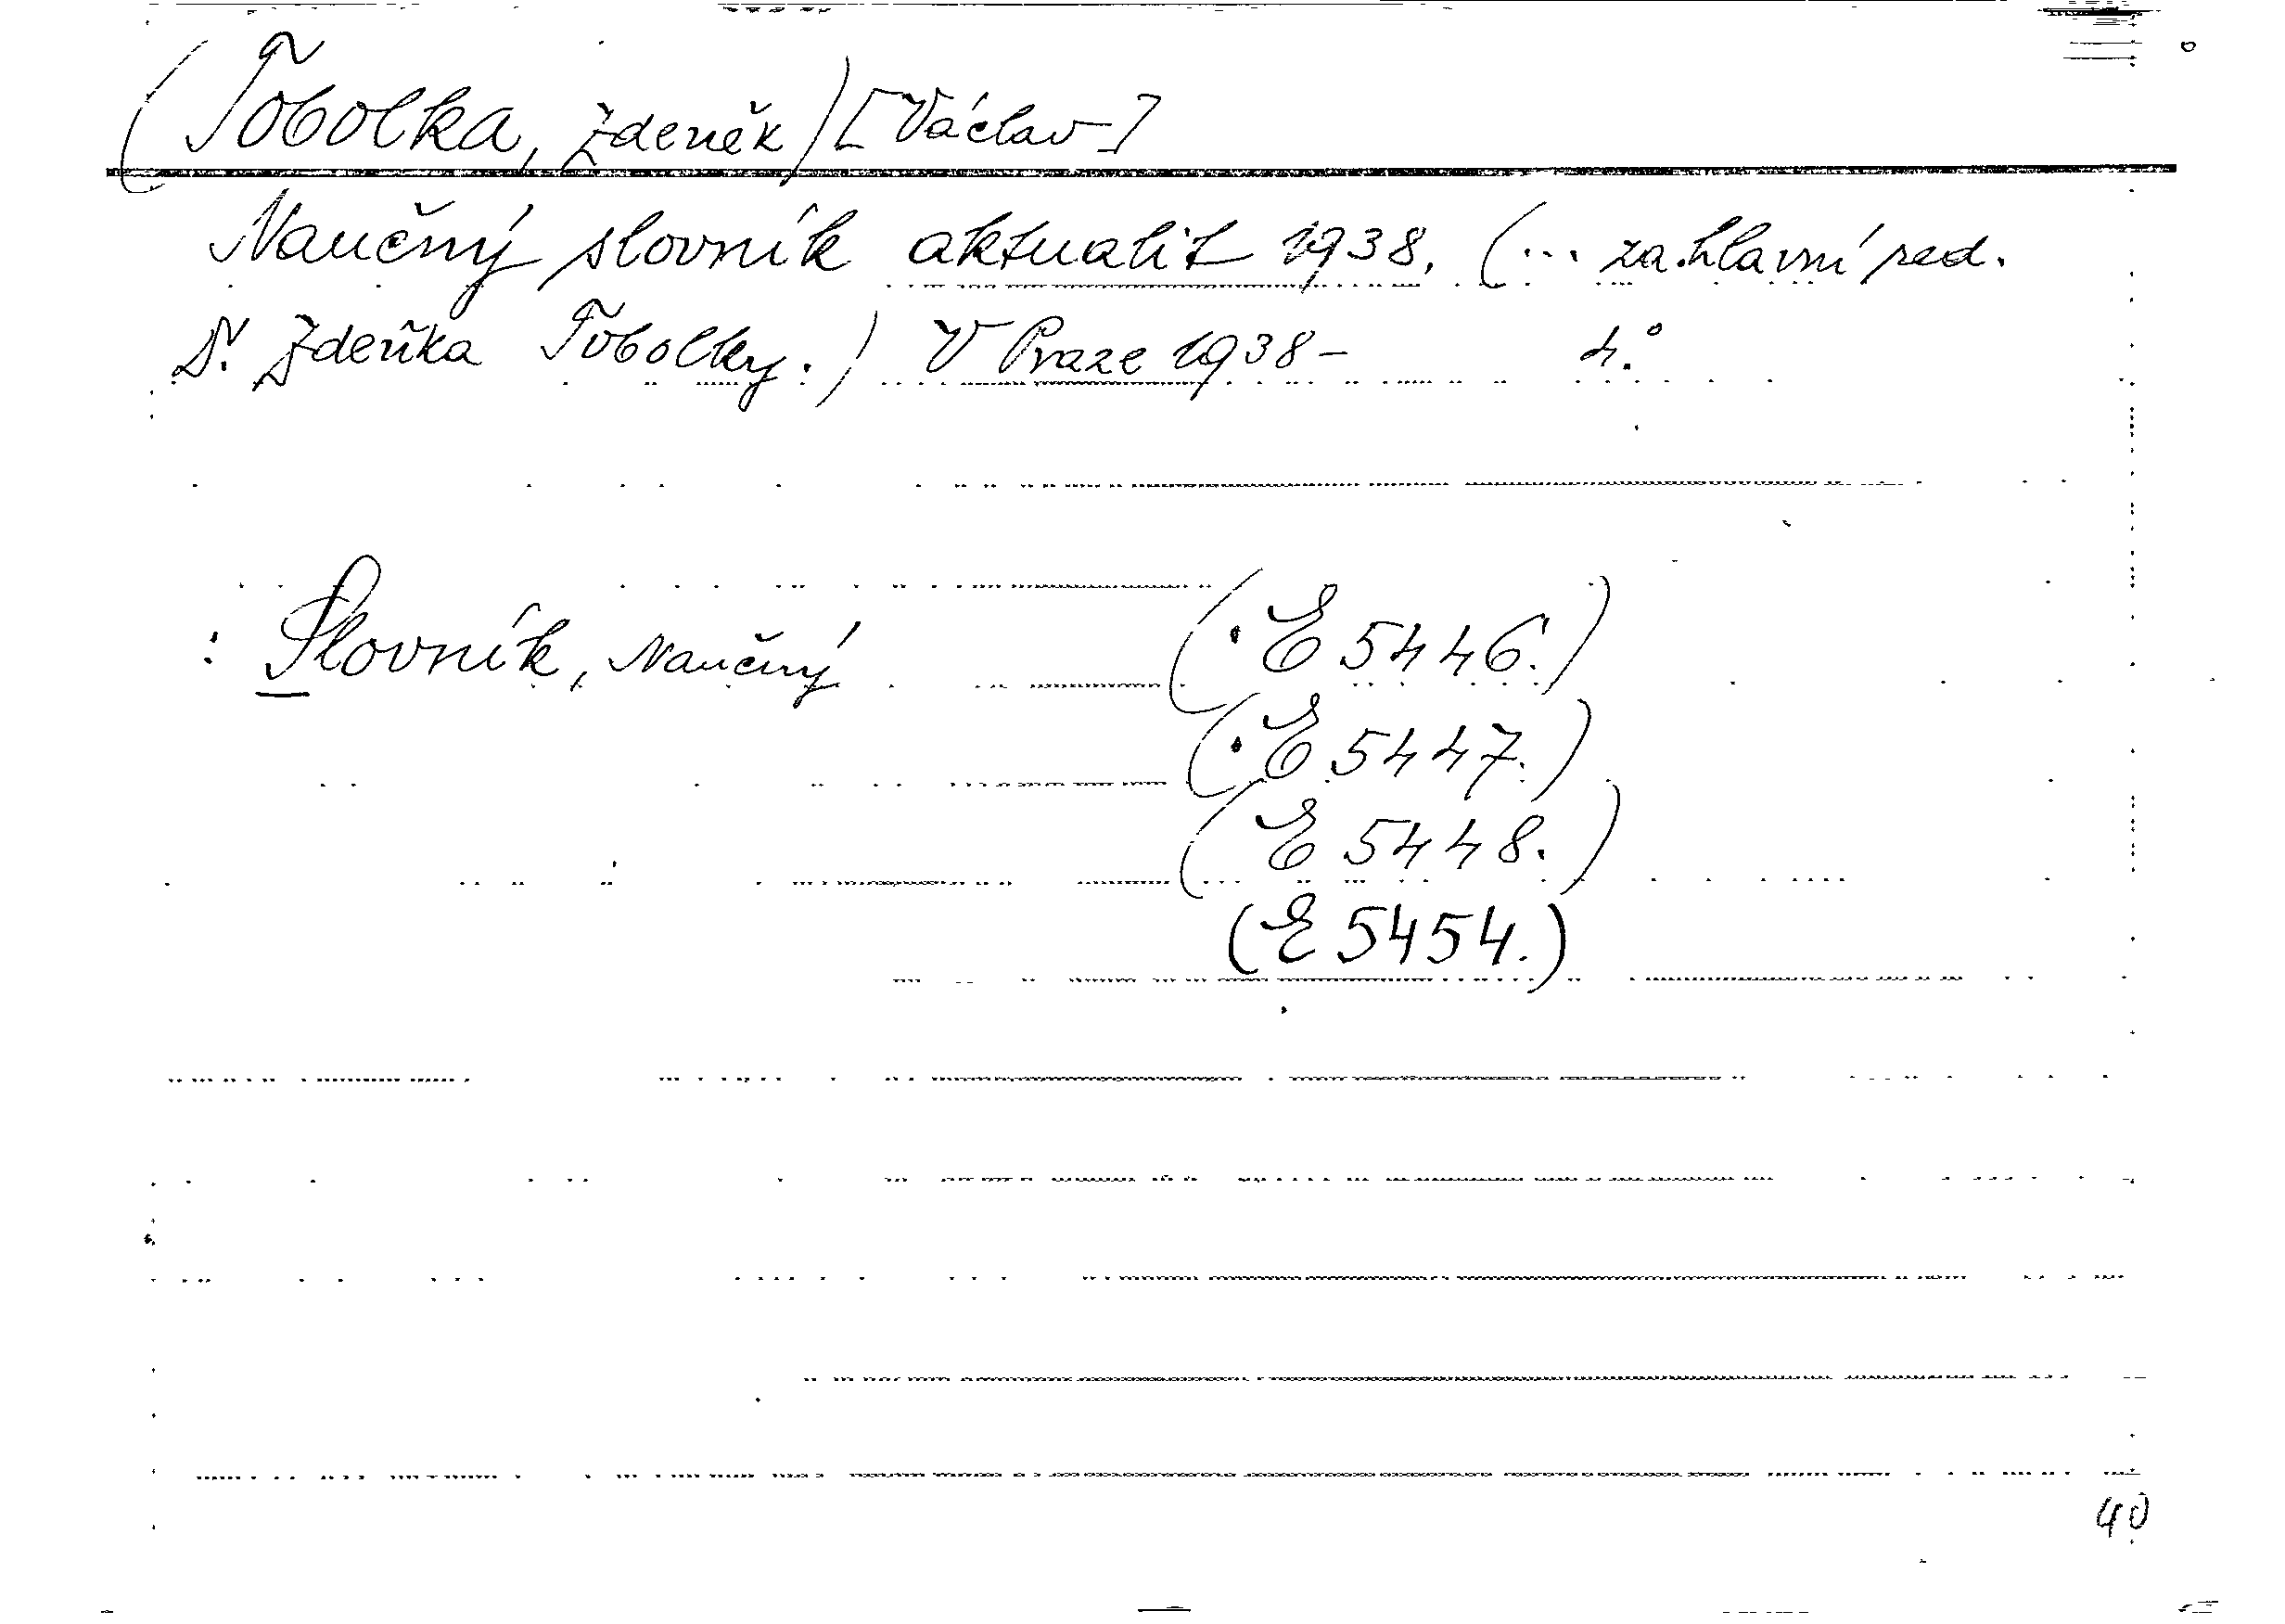 (Tobolka, Zdeněk) [Václav]
Naučný slovník aktualit 1938. (... za hlavní red.
Dr. Zdeňka Tobolky.) V Praze 1938- 4.°
: Slovník, Naučný (·E 5446.)
(·E 5447.)
(E 5448.)
(E 5454.)
40